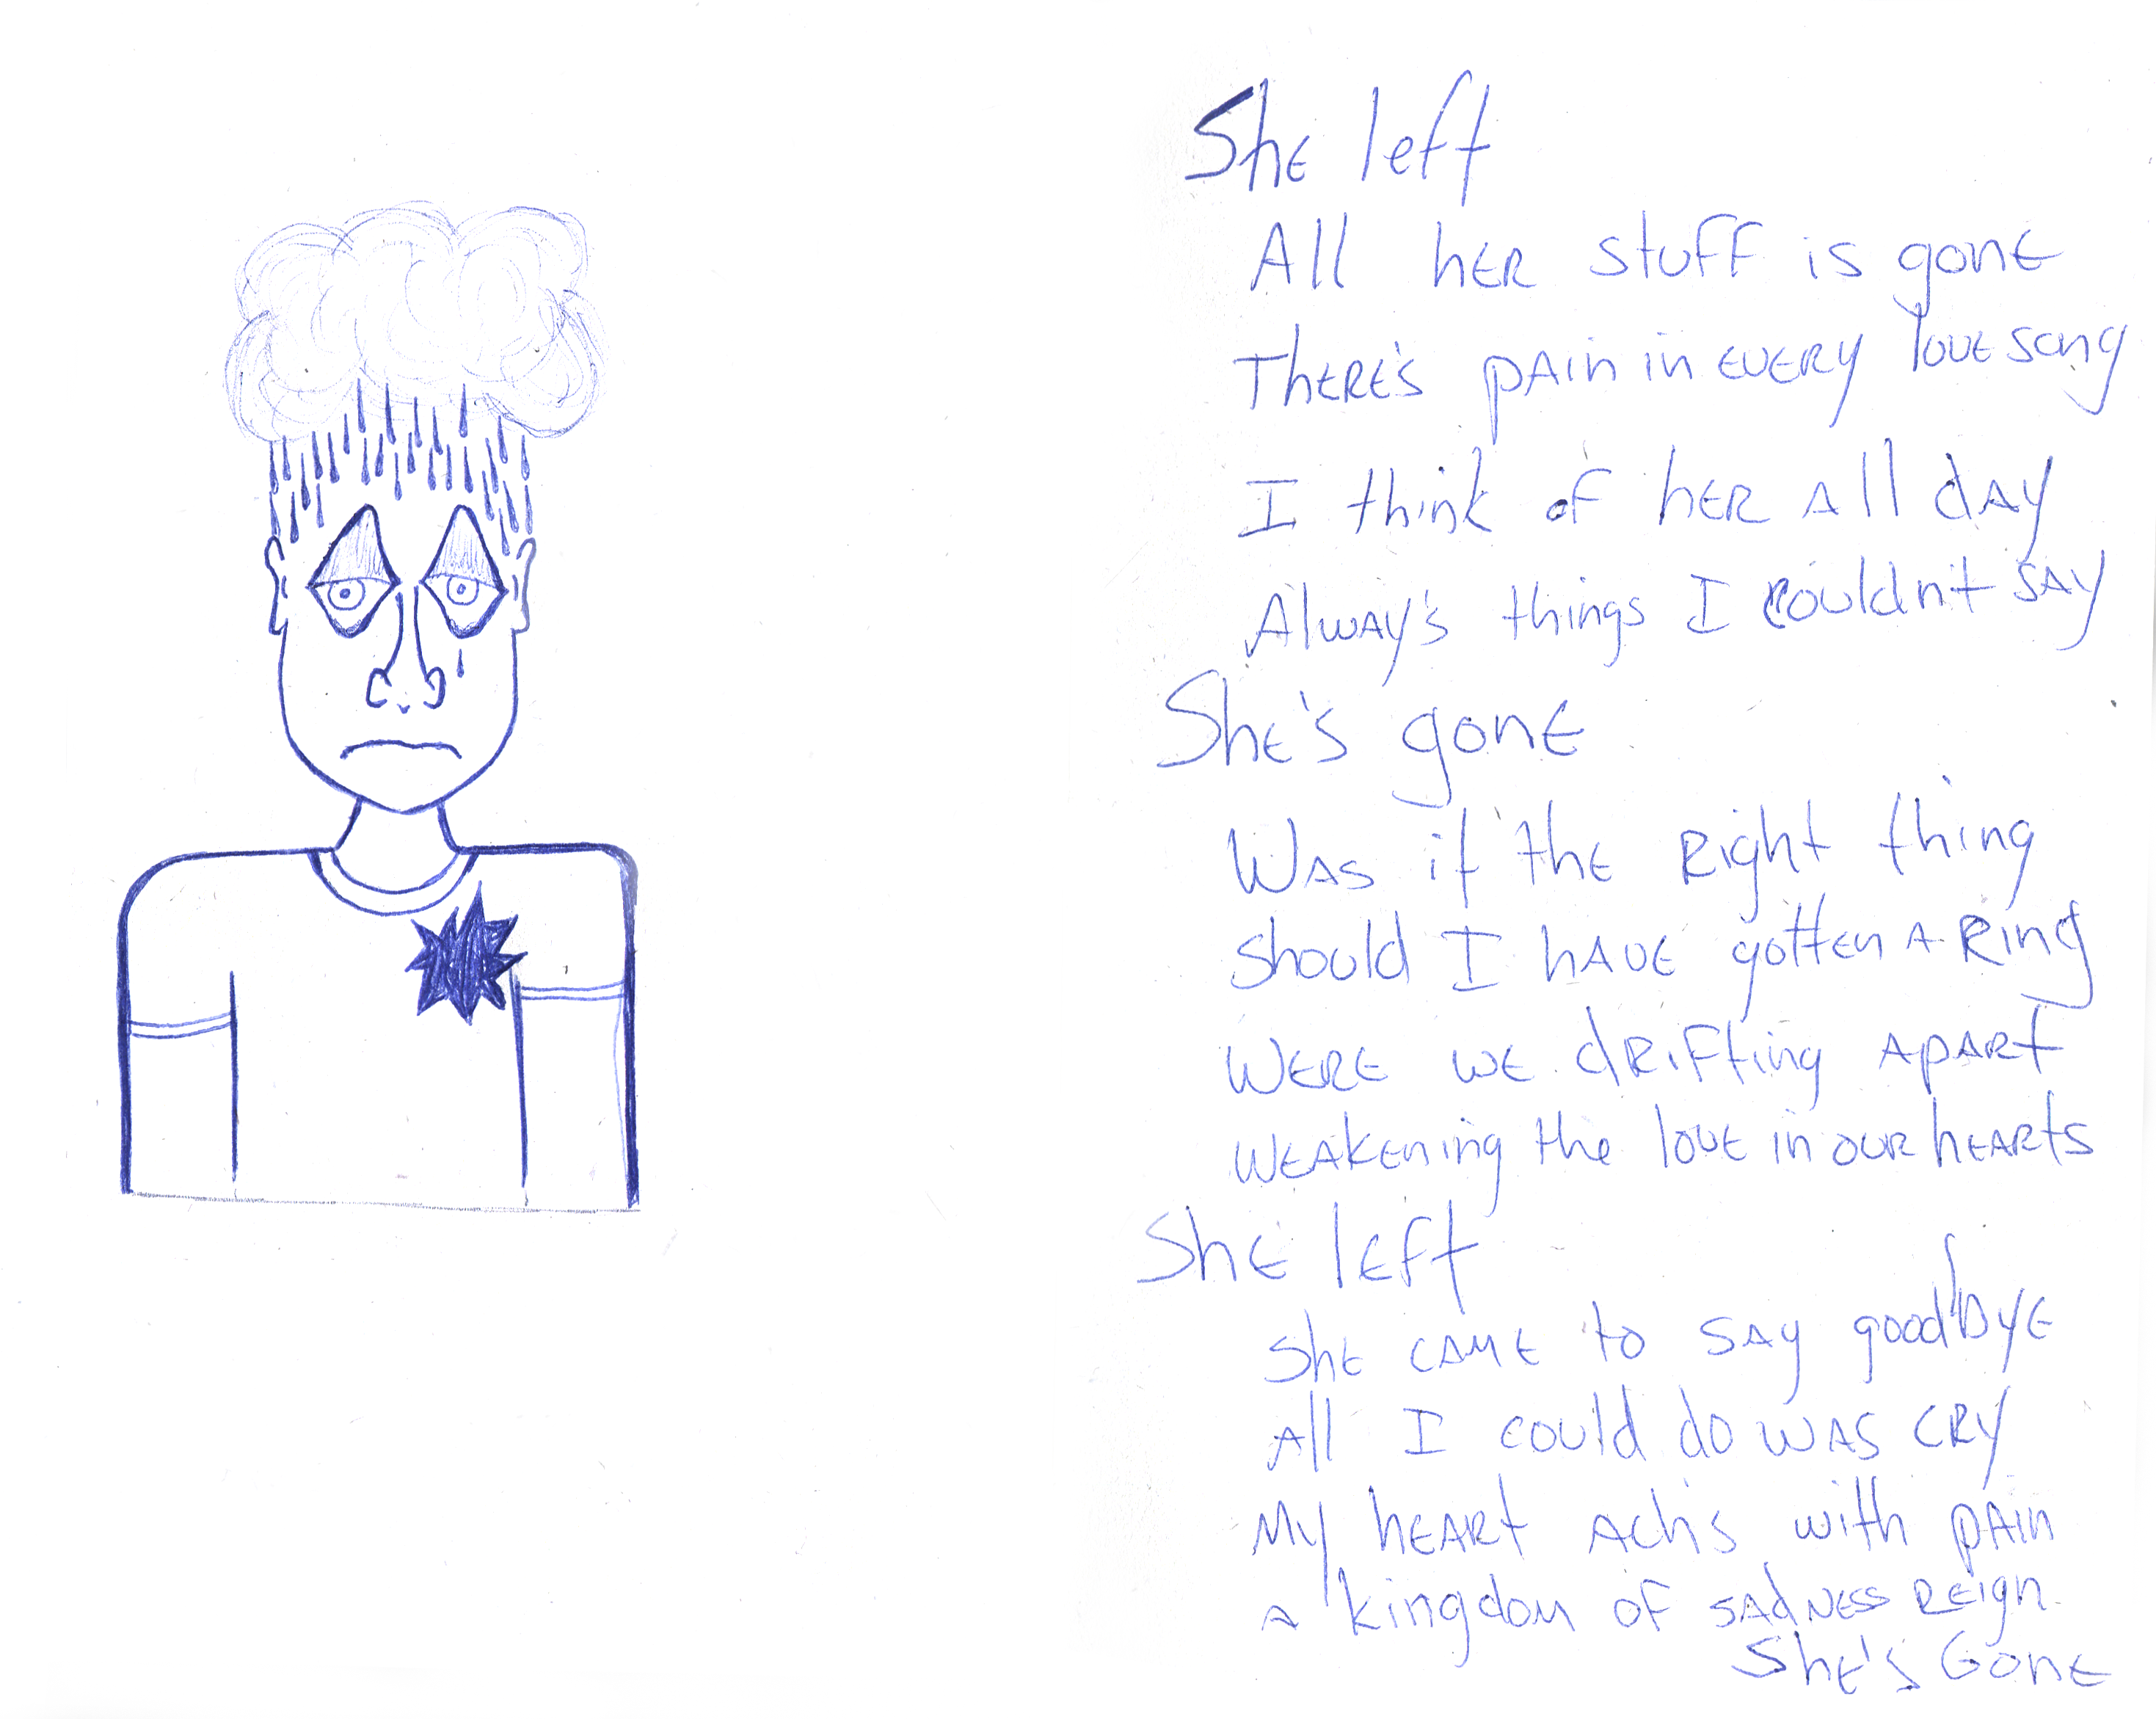 She left
All her stuff is gone
There's pain in every love song
I think of her all day
Always's things I couldn't say
She's gone
Was it the Right thing
should I have gotten a Ring
were we drifting apart
weakening the love in our hearts
She left
She came to say goodbye
All I could do was cry
My heart achs with pain
a kingdom of sadness reign
She's Gone